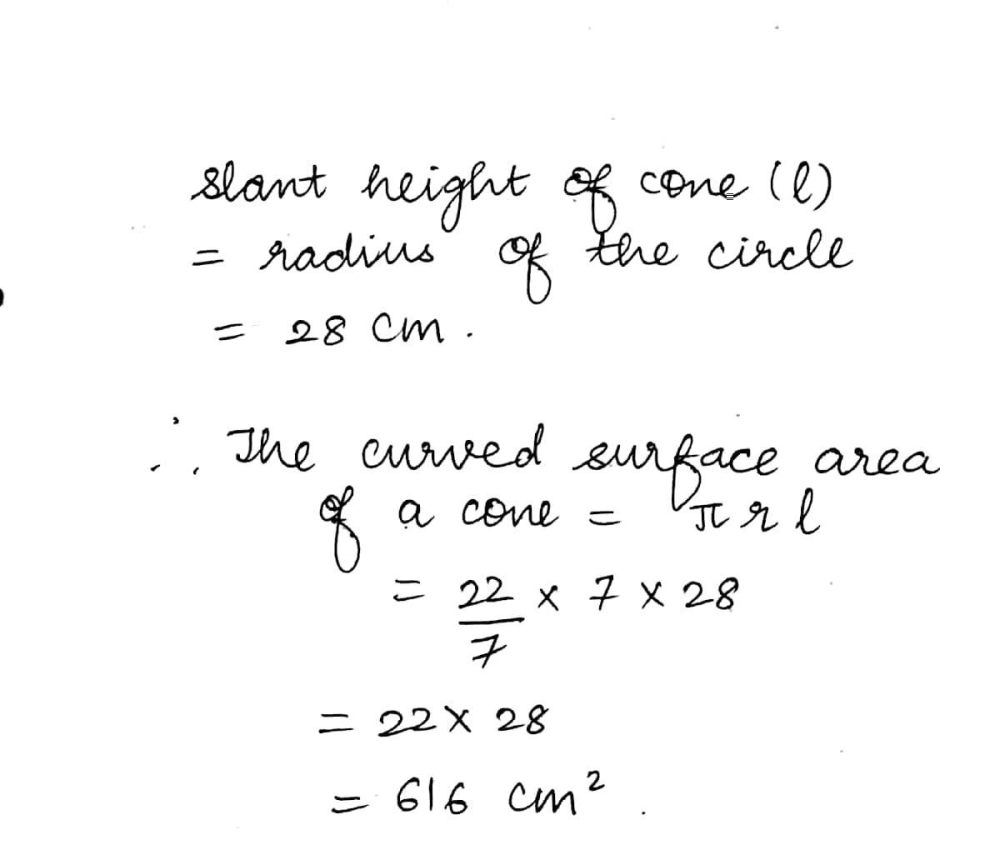 slant height of cone (l)
= radius of the circle
= 28 cm.
∴ The curved surface area
of a cone = π r l
= 22/7 × 7 × 28
= 22 × 28
= 616 cm².